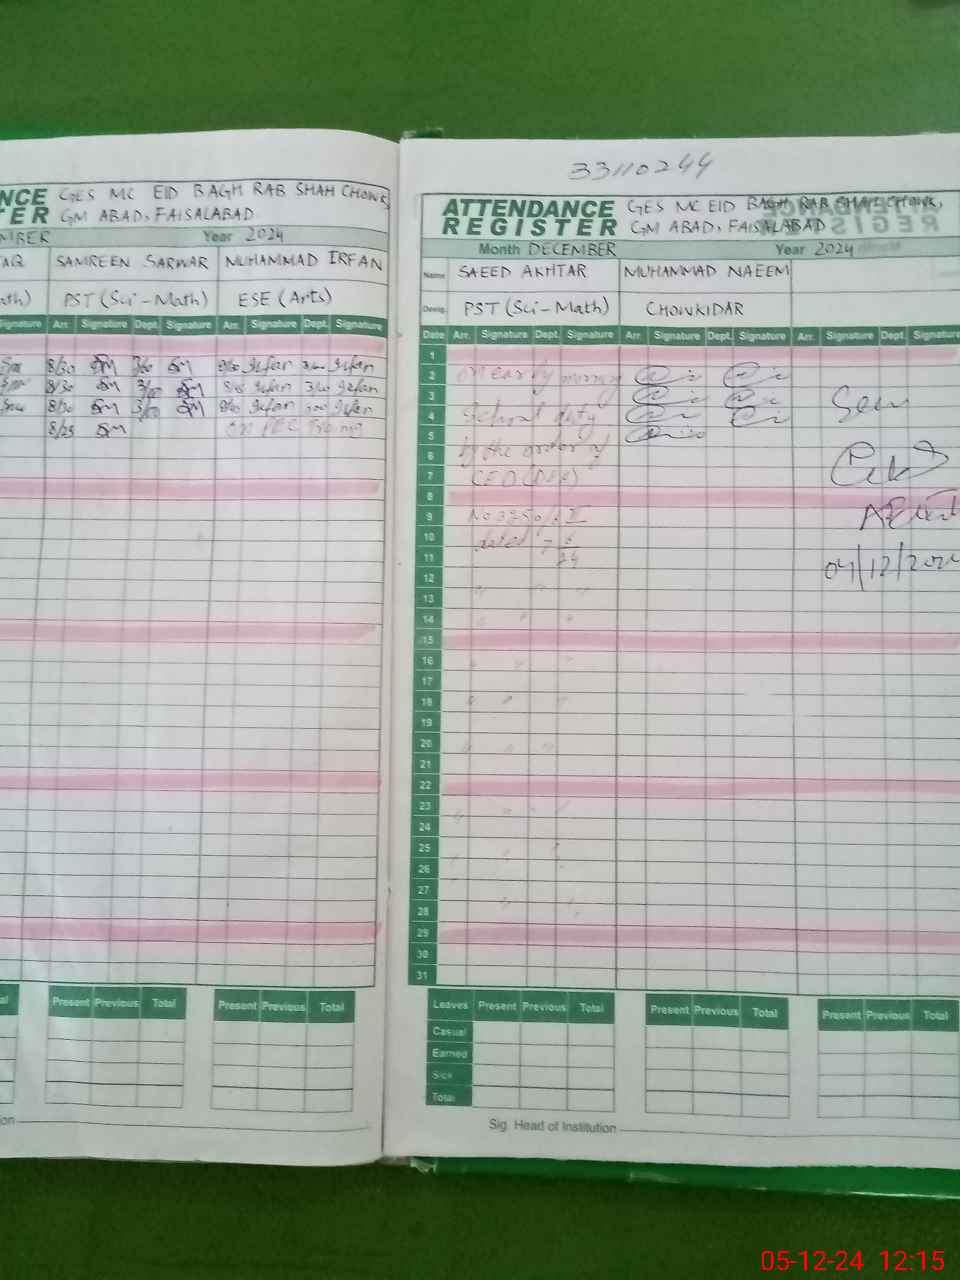 NCE GES MC EID BAGH RAB SHAH CHOWK,
TER GM ABAD, FAISALABAD
MBER Year 2024
AQ SAMREEN SARWAR MUHAMMAD IRFAN
ath) PST (Sci-Math) ESE (Arts)
Signature Arr. Signature Dept. Signature Arr. Signature Dept. Signature
8/30 SM SM Irfan Irfan
8/30 SM SM Irfan Irfan
8/30 SM SM Irfan Irfan
8/25 SM
Present Previous Total Present Previous Total
33110244
ATTENDANCE GES MC EID BAGH RAB SHAH CHOWK,
REGISTER GM ABAD, FAISALABAD
Month DECEMBER Year 2024
Name SAEED AKHTAR MUHAMMAD NAEEM
Desig. PST (Sci-Math) CHOWKIDAR
Date Arr. Signature Dept. Signature Arr. Signature Dept. Signature Arr. Signature Dept. Signature
1
2 on early morning
3
4 School duty
5
6 by the order of
7 CEO (DEA)
8
9
10 dated
11
12
13
14
15
16
17
18
19
20
21
22
23
24
25
26
27
28
29
30
31
04/12/202
Leaves Present Previous Total Present Previous Total Present Previous Total
Casual
Earned
Sick
Total
Sig. Head of Institution
05-12-24 12:15